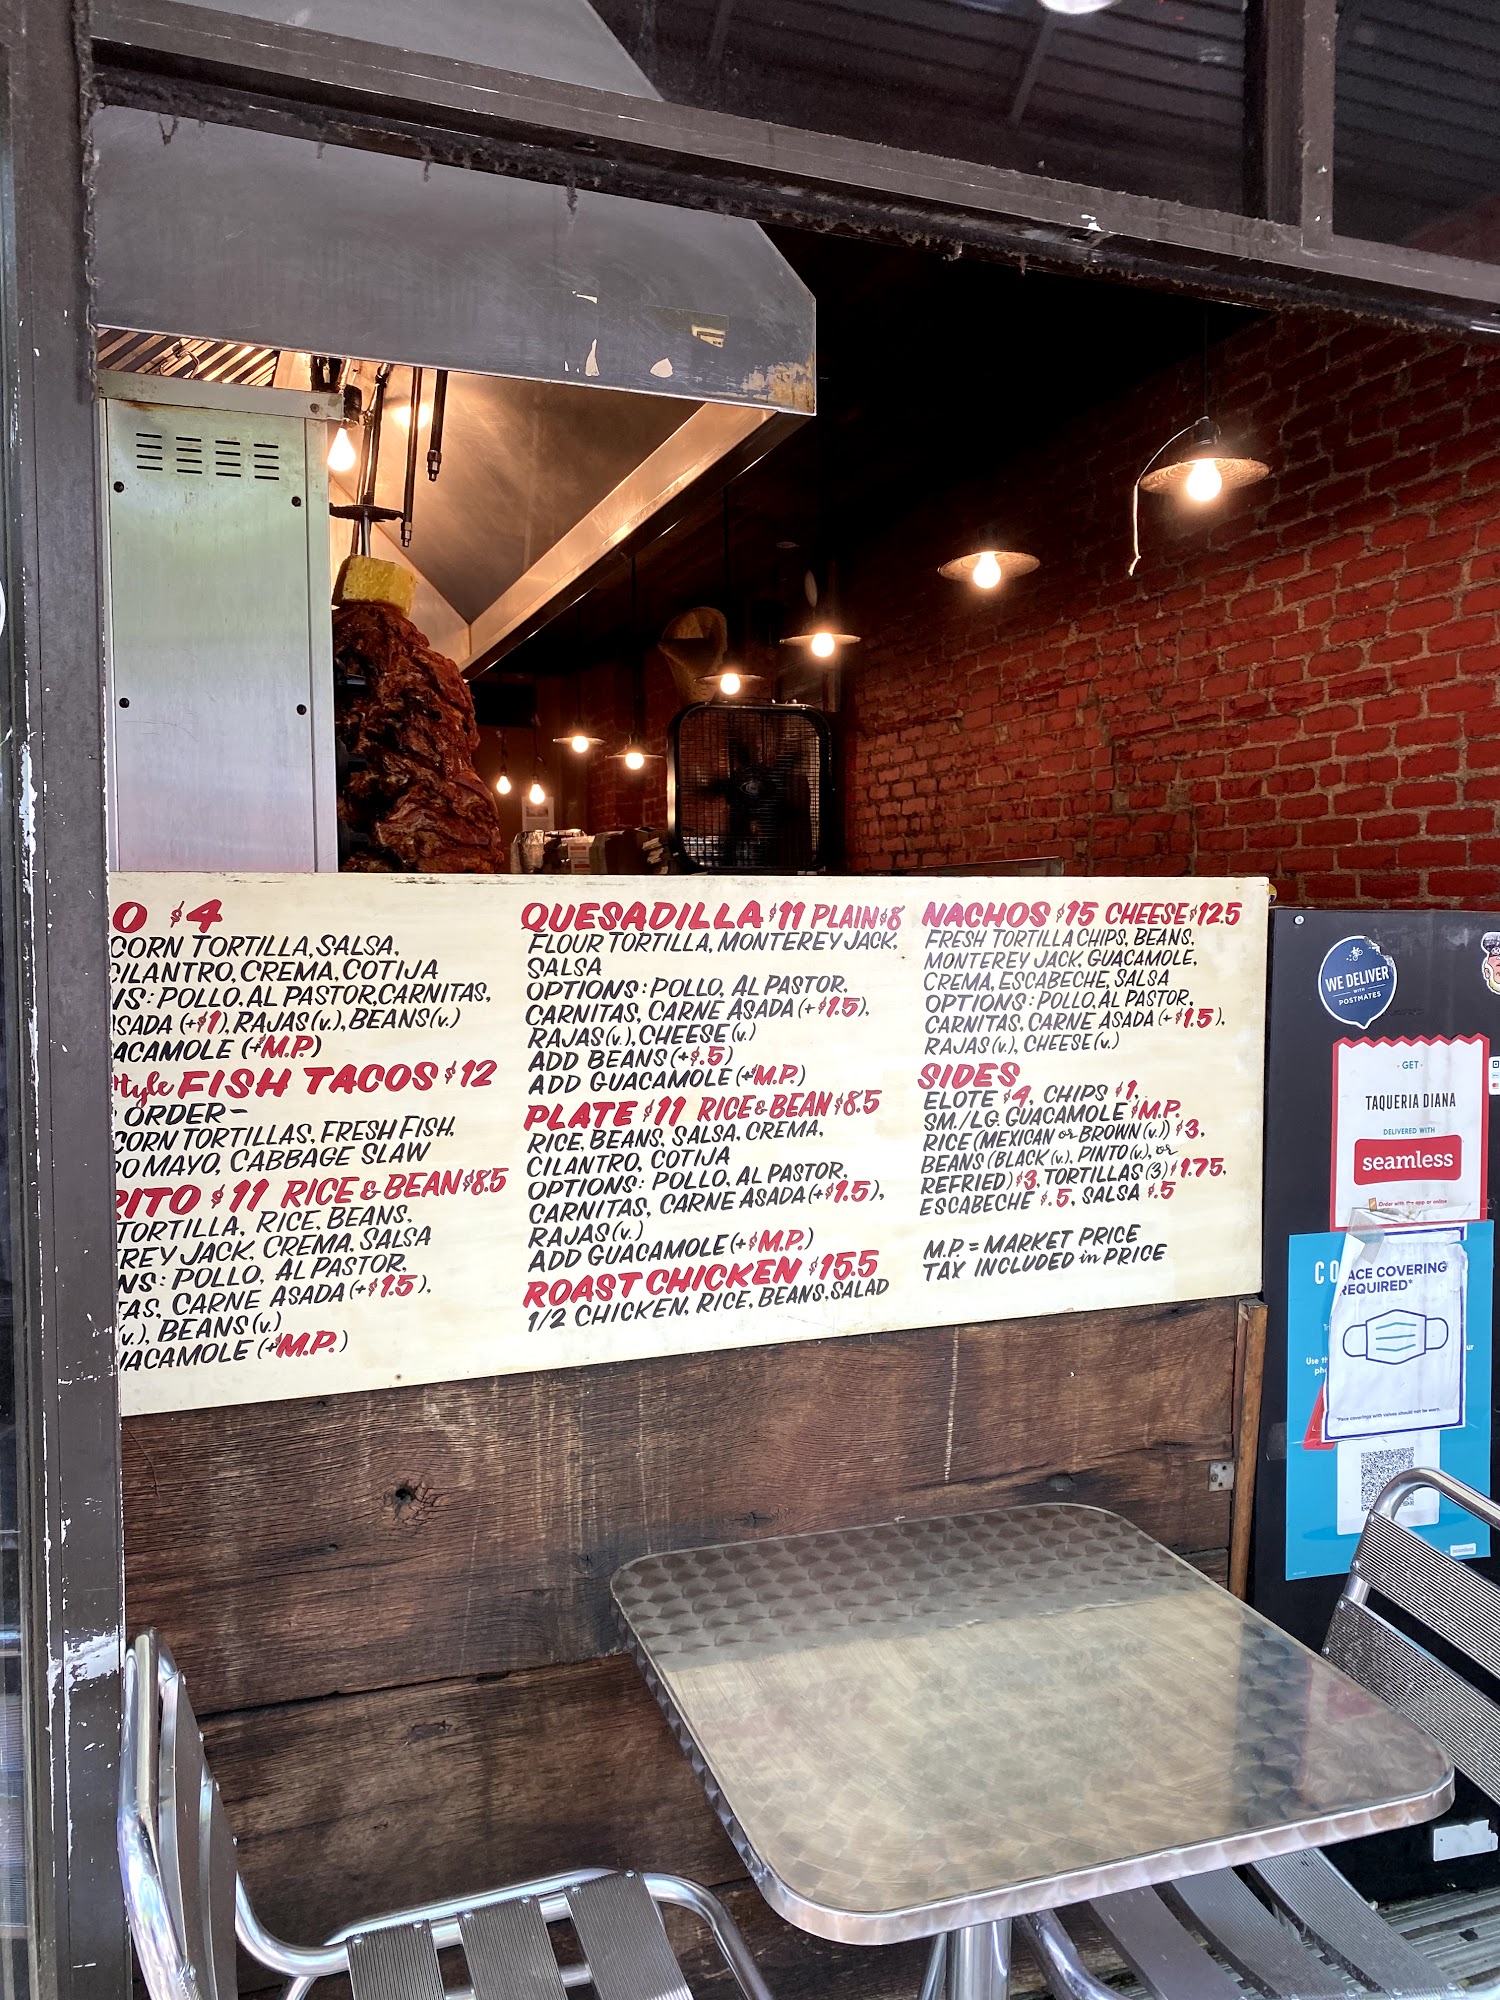 O $4
CORN TORTILLA, SALSA,
CILANTRO, CREMA, COTIJA
NS: POLLO, AL PASTOR, CARNITAS,
SADA (+$1), RAJAS (v.), BEANS (v.)
ACAMOLE (+$M.P.)
tyle FISH TACOS $12
ORDER -
CORN TORTILLAS, FRESH FISH,
O MAYO, CABBAGE SLAW
RITO $11 RICE & BEAN $8.5
TORTILLA, RICE, BEANS,
REY JACK, CREMA, SALSA
NS: POLLO, AL PASTOR,
TAS, CARNE ASADA (+$1.5),
(v.), BEANS (v.)
ACAMOLE (+$M.P.)
QUESADILLA $11 PLAIN $8
FLOUR TORTILLA, MONTEREY JACK,
SALSA
OPTIONS: POLLO, AL PASTOR,
CARNITAS, CARNE ASADA (+$1.5),
RAJAS (v.), CHEESE (v.)
ADD BEANS (+$.5)
ADD GUACAMOLE (+$M.P.)
PLATE $11 RICE & BEAN $8.5
RICE, BEANS, SALSA, CREMA,
CILANTRO, COTIJA
OPTIONS: POLLO, AL PASTOR,
CARNITAS, CARNE ASADA (+$1.5),
RAJAS (v.)
ADD GUACAMOLE (+$M.P.)
ROAST CHICKEN $15.5
1/2 CHICKEN, RICE, BEANS, SALAD
NACHOS $15 CHEESE $12.5
FRESH TORTILLA CHIPS, BEANS,
MONTEREY JACK, GUACAMOLE,
CREMA, ESCABECHE, SALSA
OPTIONS: POLLO, AL PASTOR,
CARNITAS, CARNE ASADA (+$1.5),
RAJAS (v.), CHEESE (v.)
SIDES
ELOTE $4, CHIPS $1,
SM./LG. GUACAMOLE $M.P.
RICE (MEXICAN or BROWN (v.)) $3,
BEANS (BLACK (v.), PINTO (v.), or
REFRIED) $3, TORTILLAS (3) $1.75,
ESCABECHE $.5, SALSA $.5
M.P. = MARKET PRICE
TAX INCLUDED in PRICE
WE DELIVER
WITH
POSTMATES
GET
TAQUERIA DIANA
DELIVERED WITH
seamless
Order with the app or online
CO
ACE COVERING
REQUIRED*
Use th
pho
*Face coverings with valves should not be worn.